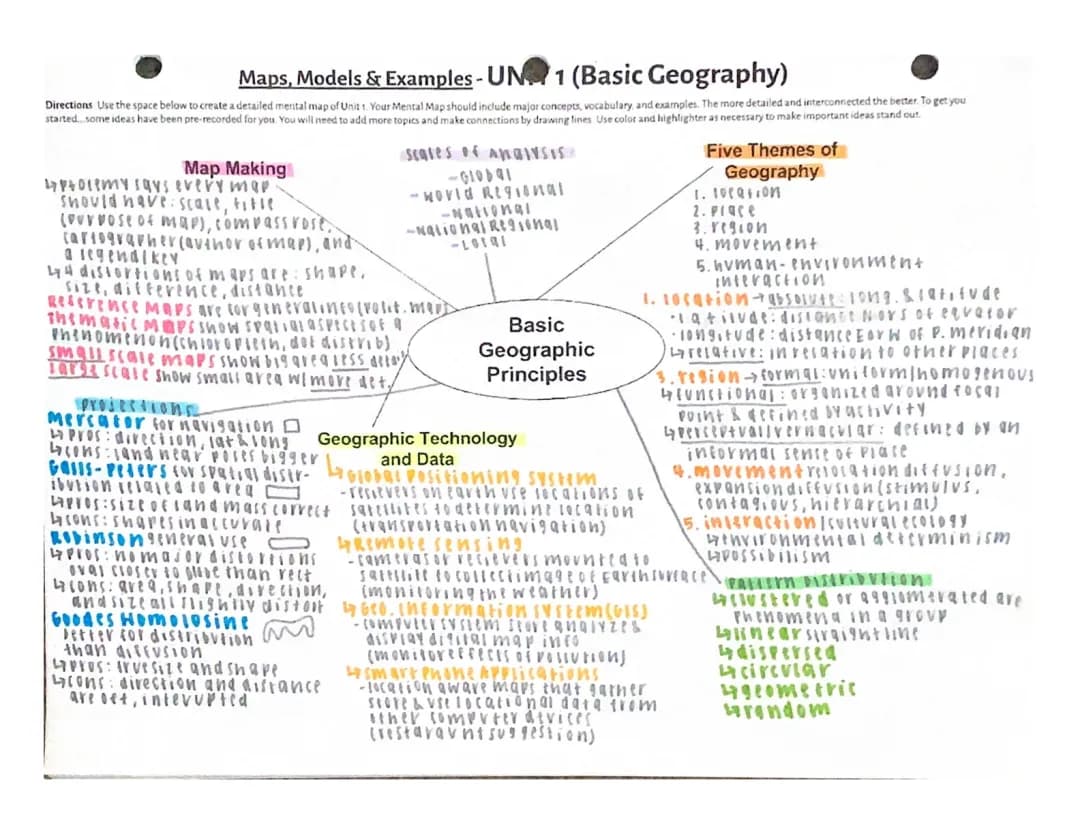 Maps, Models & Examples - UNIT 1 (Basic Geography)
Directions Use the space below to create a detailed mental map of Unit 1. Your Mental Map should include major concepts, vocabulary, and examples. The more detailed and interconnected the better. To get you
started...some ideas have been pre-recorded for you. You will need to add more topics and make connections by drawing lines Use color and highlighter as necessary to make important ideas stand out.
Map Making
↳ptolemy says every map
should have: scale, title
(purpose of map), compass rose,
cartographer (author of map), and
a legend/key
↳4 distortions of maps are: shape,
size, difference, distance
Reference Maps are for general info (polit. maps
Thematic Maps show spatial aspects of a
phenomenon (chloropleth, dot distrib)
small scale maps show big area less detail
large scale show small area w/ more det.
scales of Analysis
-Global
-World Regional
-National
-National Regional
-Local
Five Themes of
Geography
1. location
2. place
3. region
4. movement
5. human-environment
interaction
1. location → absolute: long. & latitude
·latitude: distance N or S of equator
·longitude: distance E or W of P. meridian
↳relative: in relation to other places
3. region → formal: uniform/homogenous
↳functional: organized around focal
point & defined by activity
↳perceptual/vernacular: defined by an
informal sense of place
4. movement relocation diffusion,
expansion diffusion (stimulus,
contagious, hierarchial)
5. interaction /cultural ecology
↳environmental determinism
↳possibilism
Basic
Geographic
Principles
projections
Mercator for navigation
↳pros: direction, lat & long
↳cons: land near poles bigger
Galls-Peters for spatial distr-
ibution related to area
↳pros: size of land mass correct
↳cons: shapes inaccurate
Robinson general use
↳pros: no major distortions
oval closer to globe than rect
↳cons: area, shape, direction,
and size all slightly distort
Goodes Homolosine
better for distribution
than diffusion
↳pros: true size and shape
↳cons: direction and distance
are off, interupted
Geographic Technology
and Data
↳Global Positioning System
-recievers on earth use locations of
satellites to determine location
(transportation navigation)
↳Remote sensing
-cameras or recievers mounted to
satellite to collect image of Earth surface
(monitoring the weather)
↳Geo. Information System (GIS)
-computer system store analyze &
display digital map info
(monitor effects of pollution)
↳Smart Phone Applications
-location aware maps that gather
store & use locational data from
other computer devices
(restaraunt suggestion)
Pattern Distribution
↳clustered or agglomerated are
phenomena in a group
↳linear straight line
↳dispersed
↳circular
↳geometric
↳random